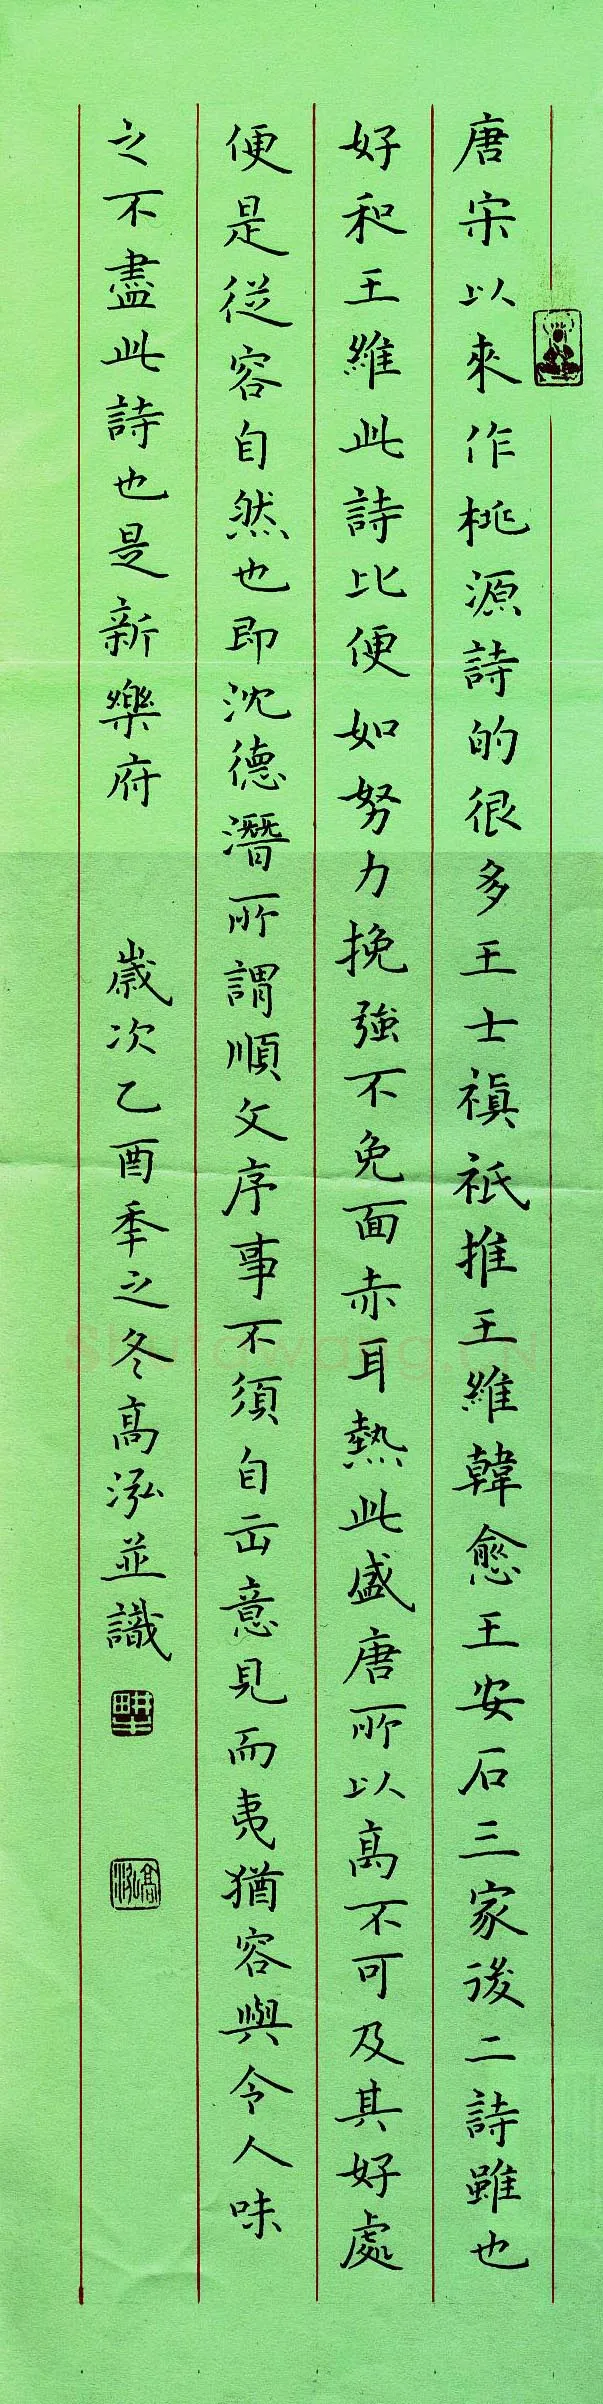 唐宋以來作桃源詩的很多王士禛祇推王維韓愈王安石三家後二詩雖也
好和王維此詩比便如努力挽強不免面赤耳熱此盛唐所以高不可及其好處
便是從容自然也即沈德潛所謂順文序事不須自出意見而夷猶容與令人味
之不盡此詩也是新樂府
歲次乙酉季之冬高泓並識
高泓